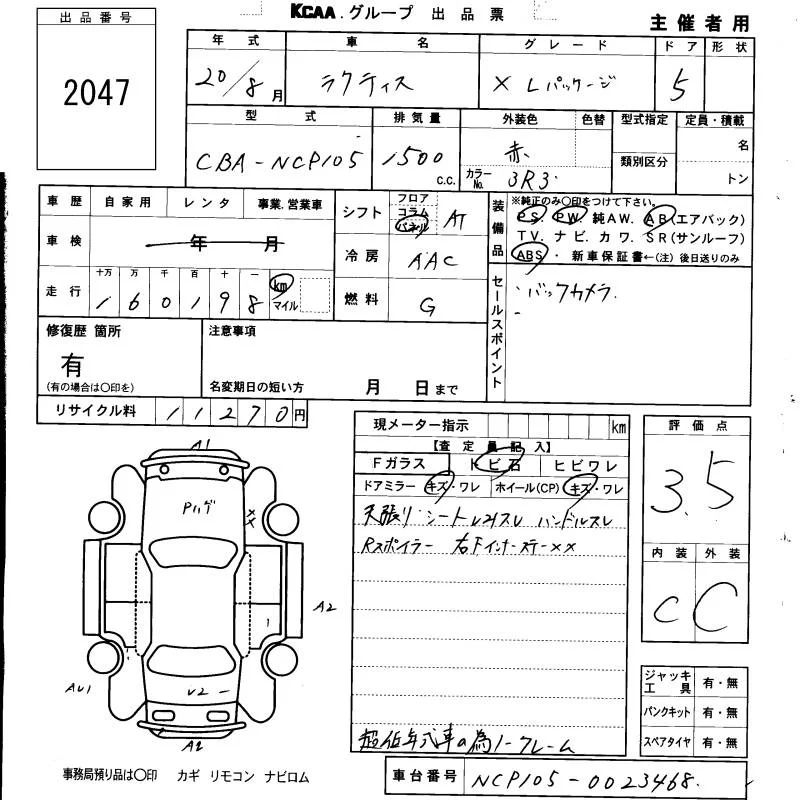 出品番号
2047
KCAA.グループ 出品票
主催者用
年式 車名 グレード ドア 形状
20/8月 ラクティス X Lパッケージ 5
型式 排気量 外装色 色替 型式指定 定員・積載
CBA-NCP105 1500 c.c. 赤 名
カラーNo. 3R3 類別区分 トン
車歴 自家用 レンタ 事業.営業車
車検 年 月
走行 十万 万 千 百 十 一 km マイル
160198
シフト フロア コラム パネル AT
冷房 AAC
燃料 G
装備品
※純正のみ○印をつけて下さい。
PS PW 純AW. AB(エアバック)
TV. ナビ. カワ. SR(サンルーフ)
ABS・新車保証書←(注) 後日送りのみ
セールスポイント
・バックカメラ.
修復歴 箇所
有
(有の場合は○印を)
注意事項
名変期日の短い方 月 日まで
リサイクル料 11270円
現メーター指示 km
【査定員記入】
Fガラス トビ石 ヒビワレ
ドアミラー キズ・ワレ ホイール(CP) キズ・ワレ
天張り・シート ハンドルスレ
Rスポイラー
超低年式車の為ノークレーム
評価点
3.5
内装 外装
C C
A1
Pハゲ
XX
A2
1
AU1
U2
A2
ジャッキ工具 有・無
パンクキット 有・無
スペアタイヤ 有・無
事務局預り品は○印 カギ リモコン ナビロム
車台番号 NCP105-0023468.